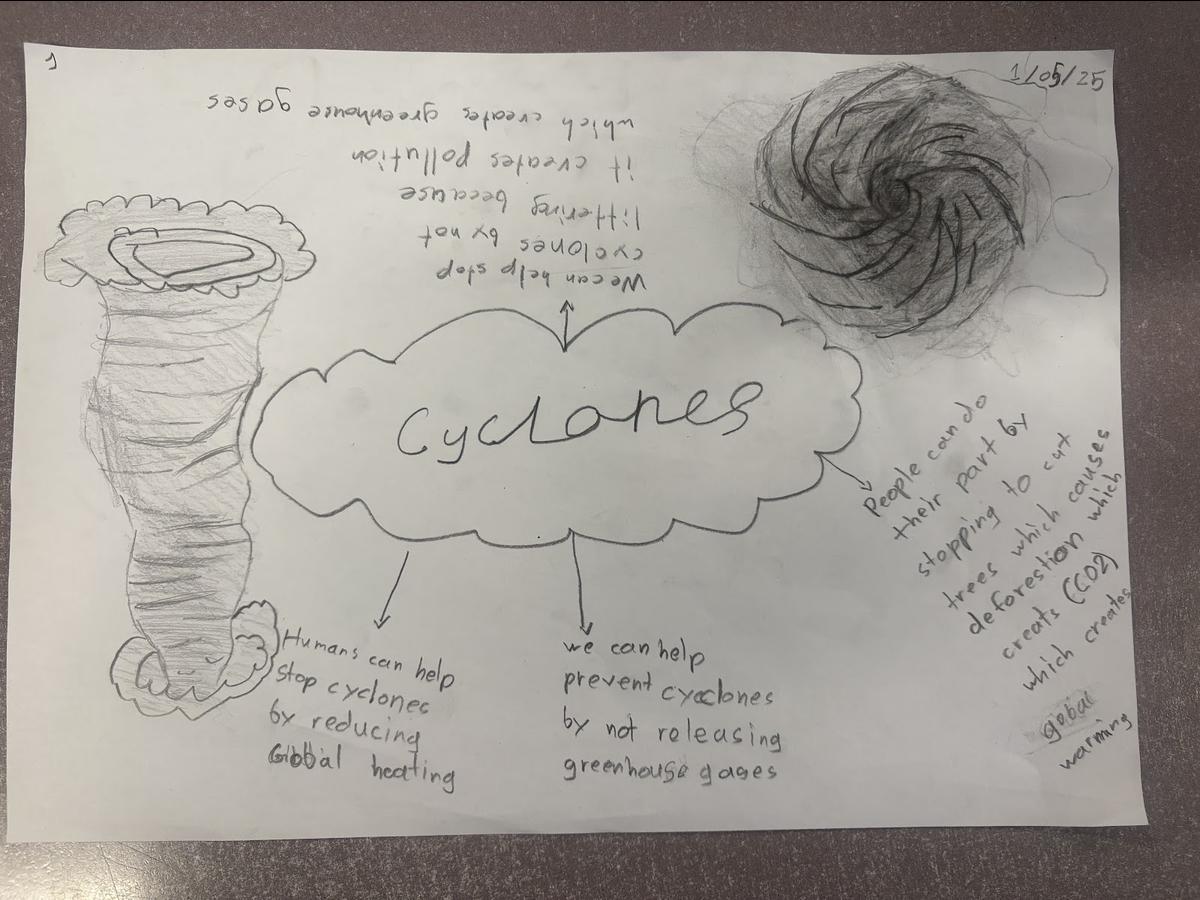 1
1/05/25
We can help stop
cyclones by not
littering because
it creates pollution
which creates greenhouse gases
Cyclones
People can do
their part by
stopping to cut
trees which causes
deforestion which
creats (CO2)
which creates
global
warming
Humans can help
stop cyclones
by reducing
Global heating
we can help
prevent cycclones
by not releasing
greenhouse gases